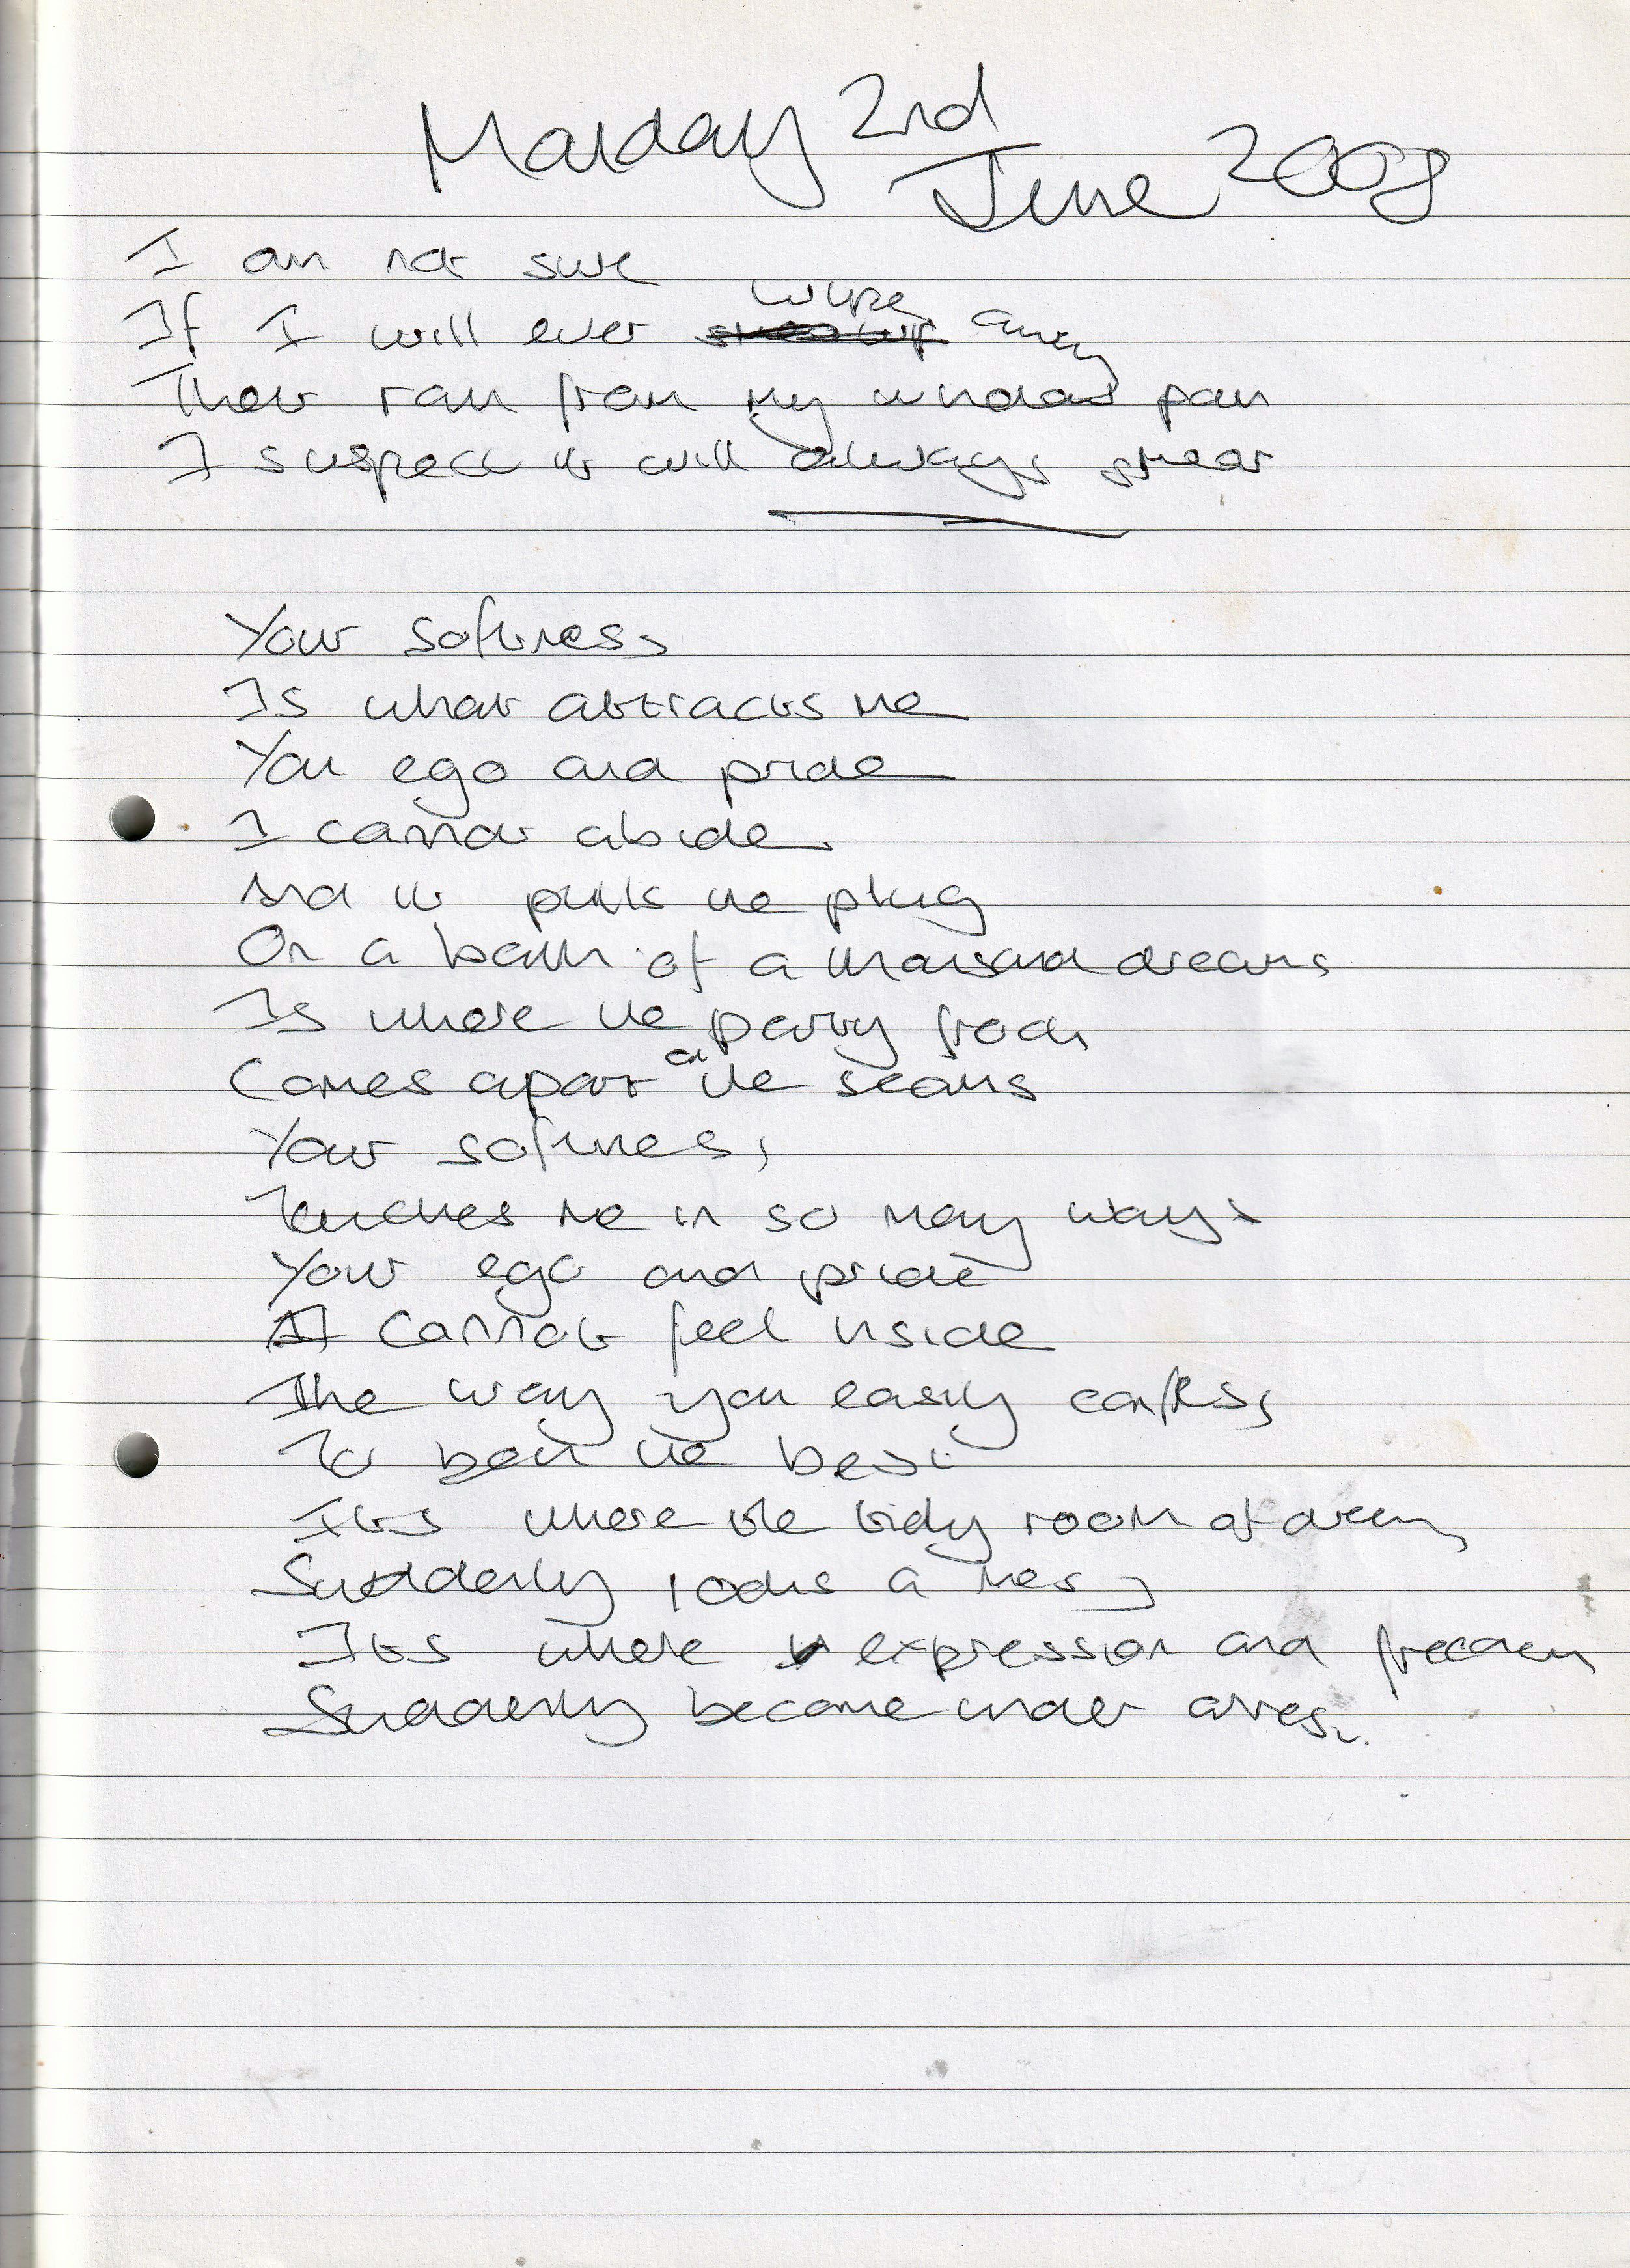 Monday 2nd June 2008
I am not sure
If I will ever wipe away
That rain from my window pain
I suspect it will always smear
Your softness
Is what attracts me
Your ego and pride
I cannot abide
And it pulls the plug
On a bath of a thousand dreams
Is where the party frock
Comes apart at the seams
Your softness,
Touches me in so many ways
Your ego and pride
I cannot feel inside
The way you easily confess
To being the best
Its where the tidy room of dreams
Suddenly looks a mess
Its where expression and freedom
Suddenly become under arrest.